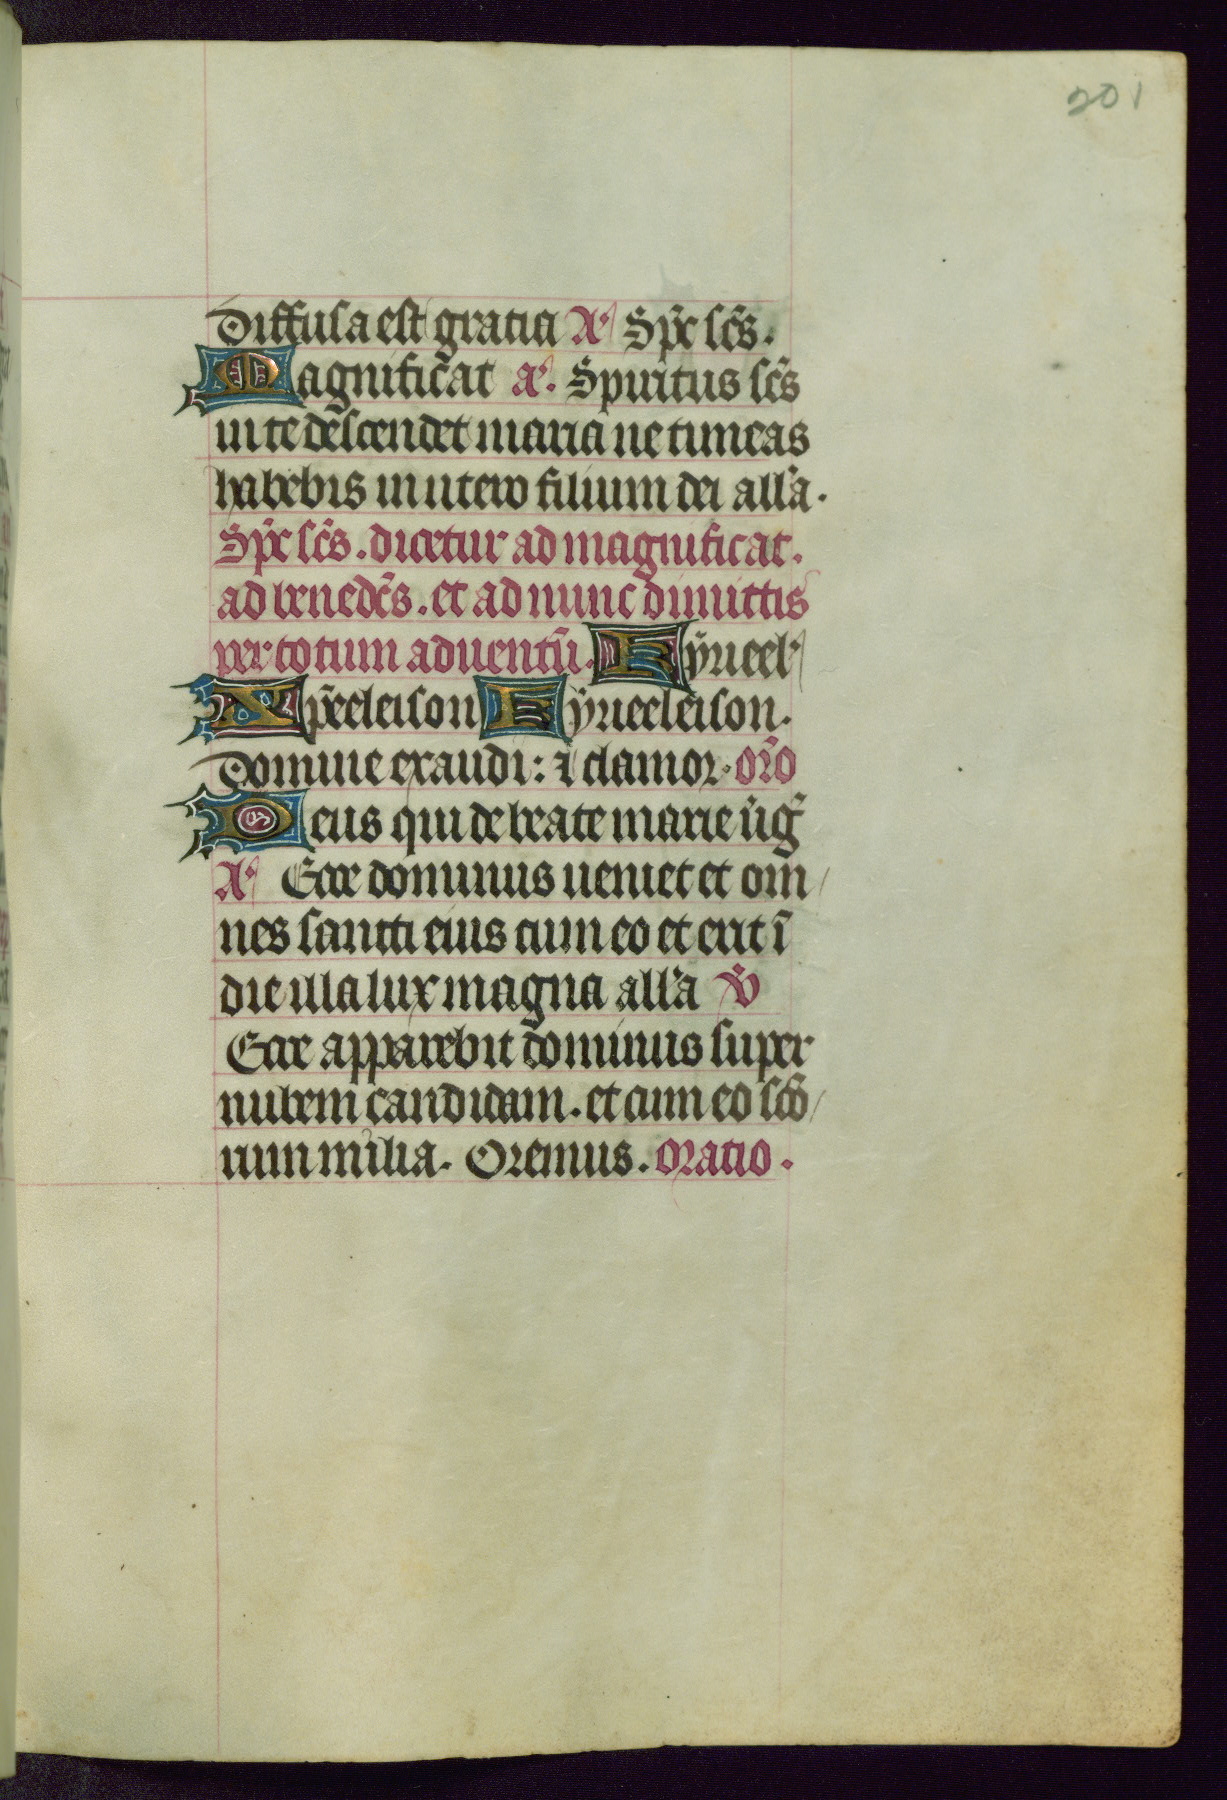 201
Diffusa est gratia A' Sp̄c sc̄s.
Magnificat a'. Spiritus sc̄s
in te descendet maria ne timeas
habebis in utero filium dei all'a.
Sp̄c sc̄s. dicetur ad magnificat.
ad bened̄cs. et ad nunc dimittis
per totum aduentū. Kyrieel'
Xp̄eeleison Kyrieeleison.
Domine exaudi: ⁊ clamor. or̄o
Deus qui de beate marie uīg̃
A' Ecce dominus ueniet et om
nes sancti eius cum eo et erit ī
die illa lux magna all'a V̄
Ecce apparebit dominus super
nubem candidam. et cum eo sc̄o
rum milia. Oremus. oratio.